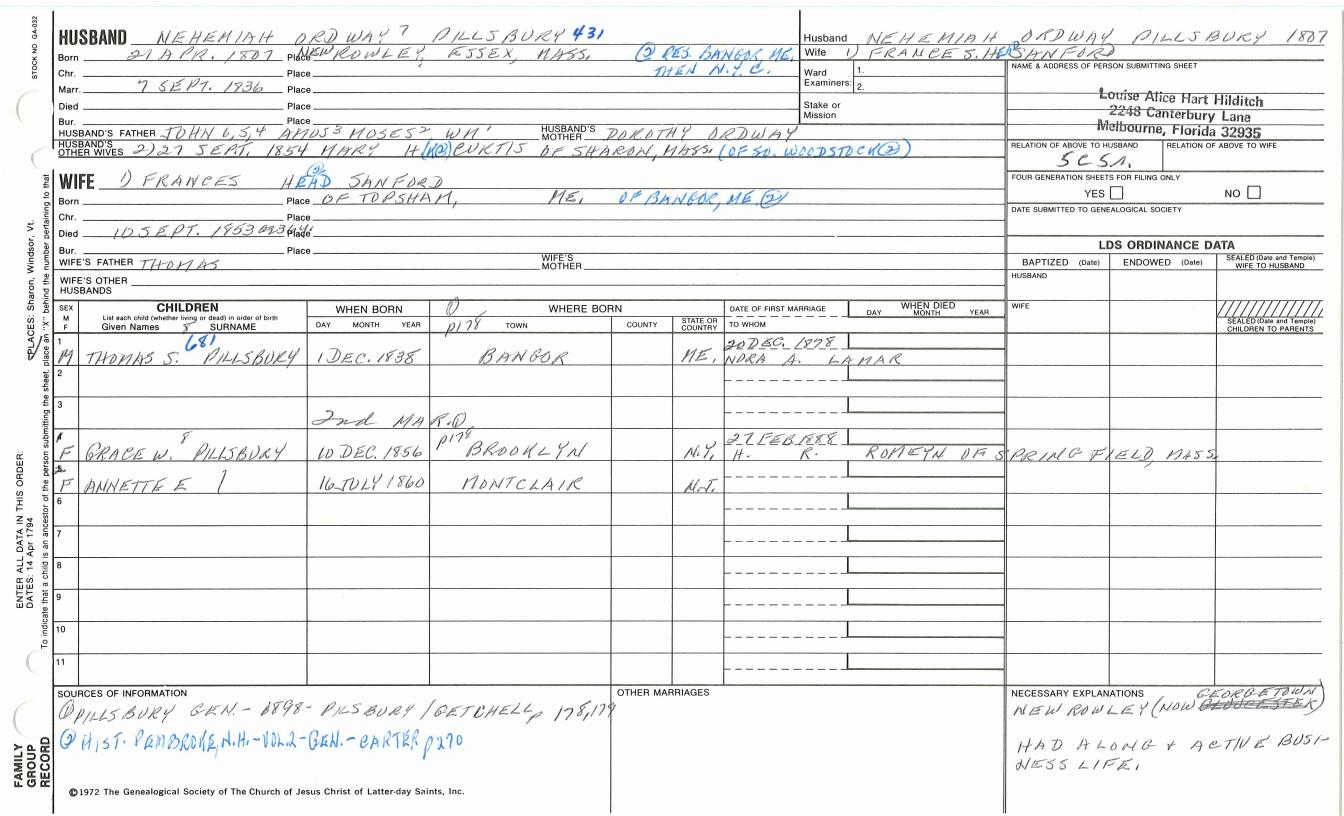 STOCK NO. GA-032
HUSBAND NEHEMIAH ORDWAY 7 PILLSBURY 431
Born 21 APR. 1807 Place NEW ROWLEY, ESSEX, MASS. (2) RES. BANGOR, ME,
Chr. Place THEN N.Y.C.
Marr. 7 SEPT. 1836 Place
Died Place
Bur. Place
HUSBAND'S FATHER JOHN 6,5,4 AMOS3 MOSES2 WM1 HUSBAND'S MOTHER DOROTHY ORDWAY
HUSBAND'S OTHER WIVES 2) 27 SEPT. 1854 MARY H CURTIS OF SHARON, MASS. (OF SO. WOODSTOCK (2))
Husband NEHEMIAH ORDWAY PILLSBURY 1807
Wife 1) FRANCES S. HEAD SANFORD
Ward Examiners: 1.
2.
Stake or Mission
NAME & ADDRESS OF PERSON SUBMITTING SHEET
Louise Alice Hart Hilditch
2248 Canterbury Lane
Melbourne, Florida 32935
RELATION OF ABOVE TO HUSBAND RELATION OF ABOVE TO WIFE
FOUR GENERATION SHEETS FOR FILING ONLY
YES NO
DATE SUBMITTED TO GENEALOGICAL SOCIETY
WIFE 1) FRANCES HEAD (2) SANFORD
Born Place OF TOPSHAM, ME. OF BANGOR, ME (2)
Chr. Place
Died 10 SEPT. 1853 Place
Bur. Place
WIFE'S FATHER THOMAS WIFE'S MOTHER
WIFE'S OTHER HUSBANDS
LDS ORDINANCE DATA
BAPTIZED (Date) ENDOWED (Date) SEALED (Date and Temple) WIFE TO HUSBAND
HUSBAND
WIFE
SEALED (Date and Temple) CHILDREN TO PARENTS
SEX M F CHILDREN
List each child (whether living or dead) in order of birth
Given Names 8 SURNAME
WHEN BORN
DAY MONTH YEAR
(1) p178 WHERE BORN
TOWN COUNTY STATE OR COUNTRY
DATE OF FIRST MARRIAGE
TO WHOM
WHEN DIED
DAY MONTH YEAR
1 M THOMAS S. 681 PILLSBURY 1 DEC. 1838 BANGOR ME, 20 DEC. 1878
NORA A. LAMAR
2
3 2nd MAR. (1) p178
F GRACE W. 8 PILLSBURY 10 DEC. 1856 BROOKLYN N.Y, 27 FEB 1888
H. R. ROMEYN OF SPRINGFIELD, MASS.
F ANNETTE E 16 JULY 1860 MONTCLAIR N.J.
6
7
8
9
10
11
SOURCES OF INFORMATION
(1) PILLSBURY GEN. - 1898 - PILSBURY / GETCHELL, p 178,179
(2) HIST. PEMBROKE, N.H. - VOL. 2 - GEN. - CARTER p 270
OTHER MARRIAGES
NECESSARY EXPLANATIONS GEORGETOWN
NEW ROWLEY (NOW GLOUCESTER)
HAD A LONG & ACTIVE BUSI-
NESS LIFE.
©1972 The Genealogical Society of The Church of Jesus Christ of Latter-day Saints, Inc.
FAMILY GROUP RECORD
ENTER ALL DATA IN THIS ORDER:
DATES: 14 Apr 1794
PLACES: Sharon, Windsor, Vt.
To indicate that a child is an ancestor of the person submitting the sheet, place an "X" behind the number pertaining to that